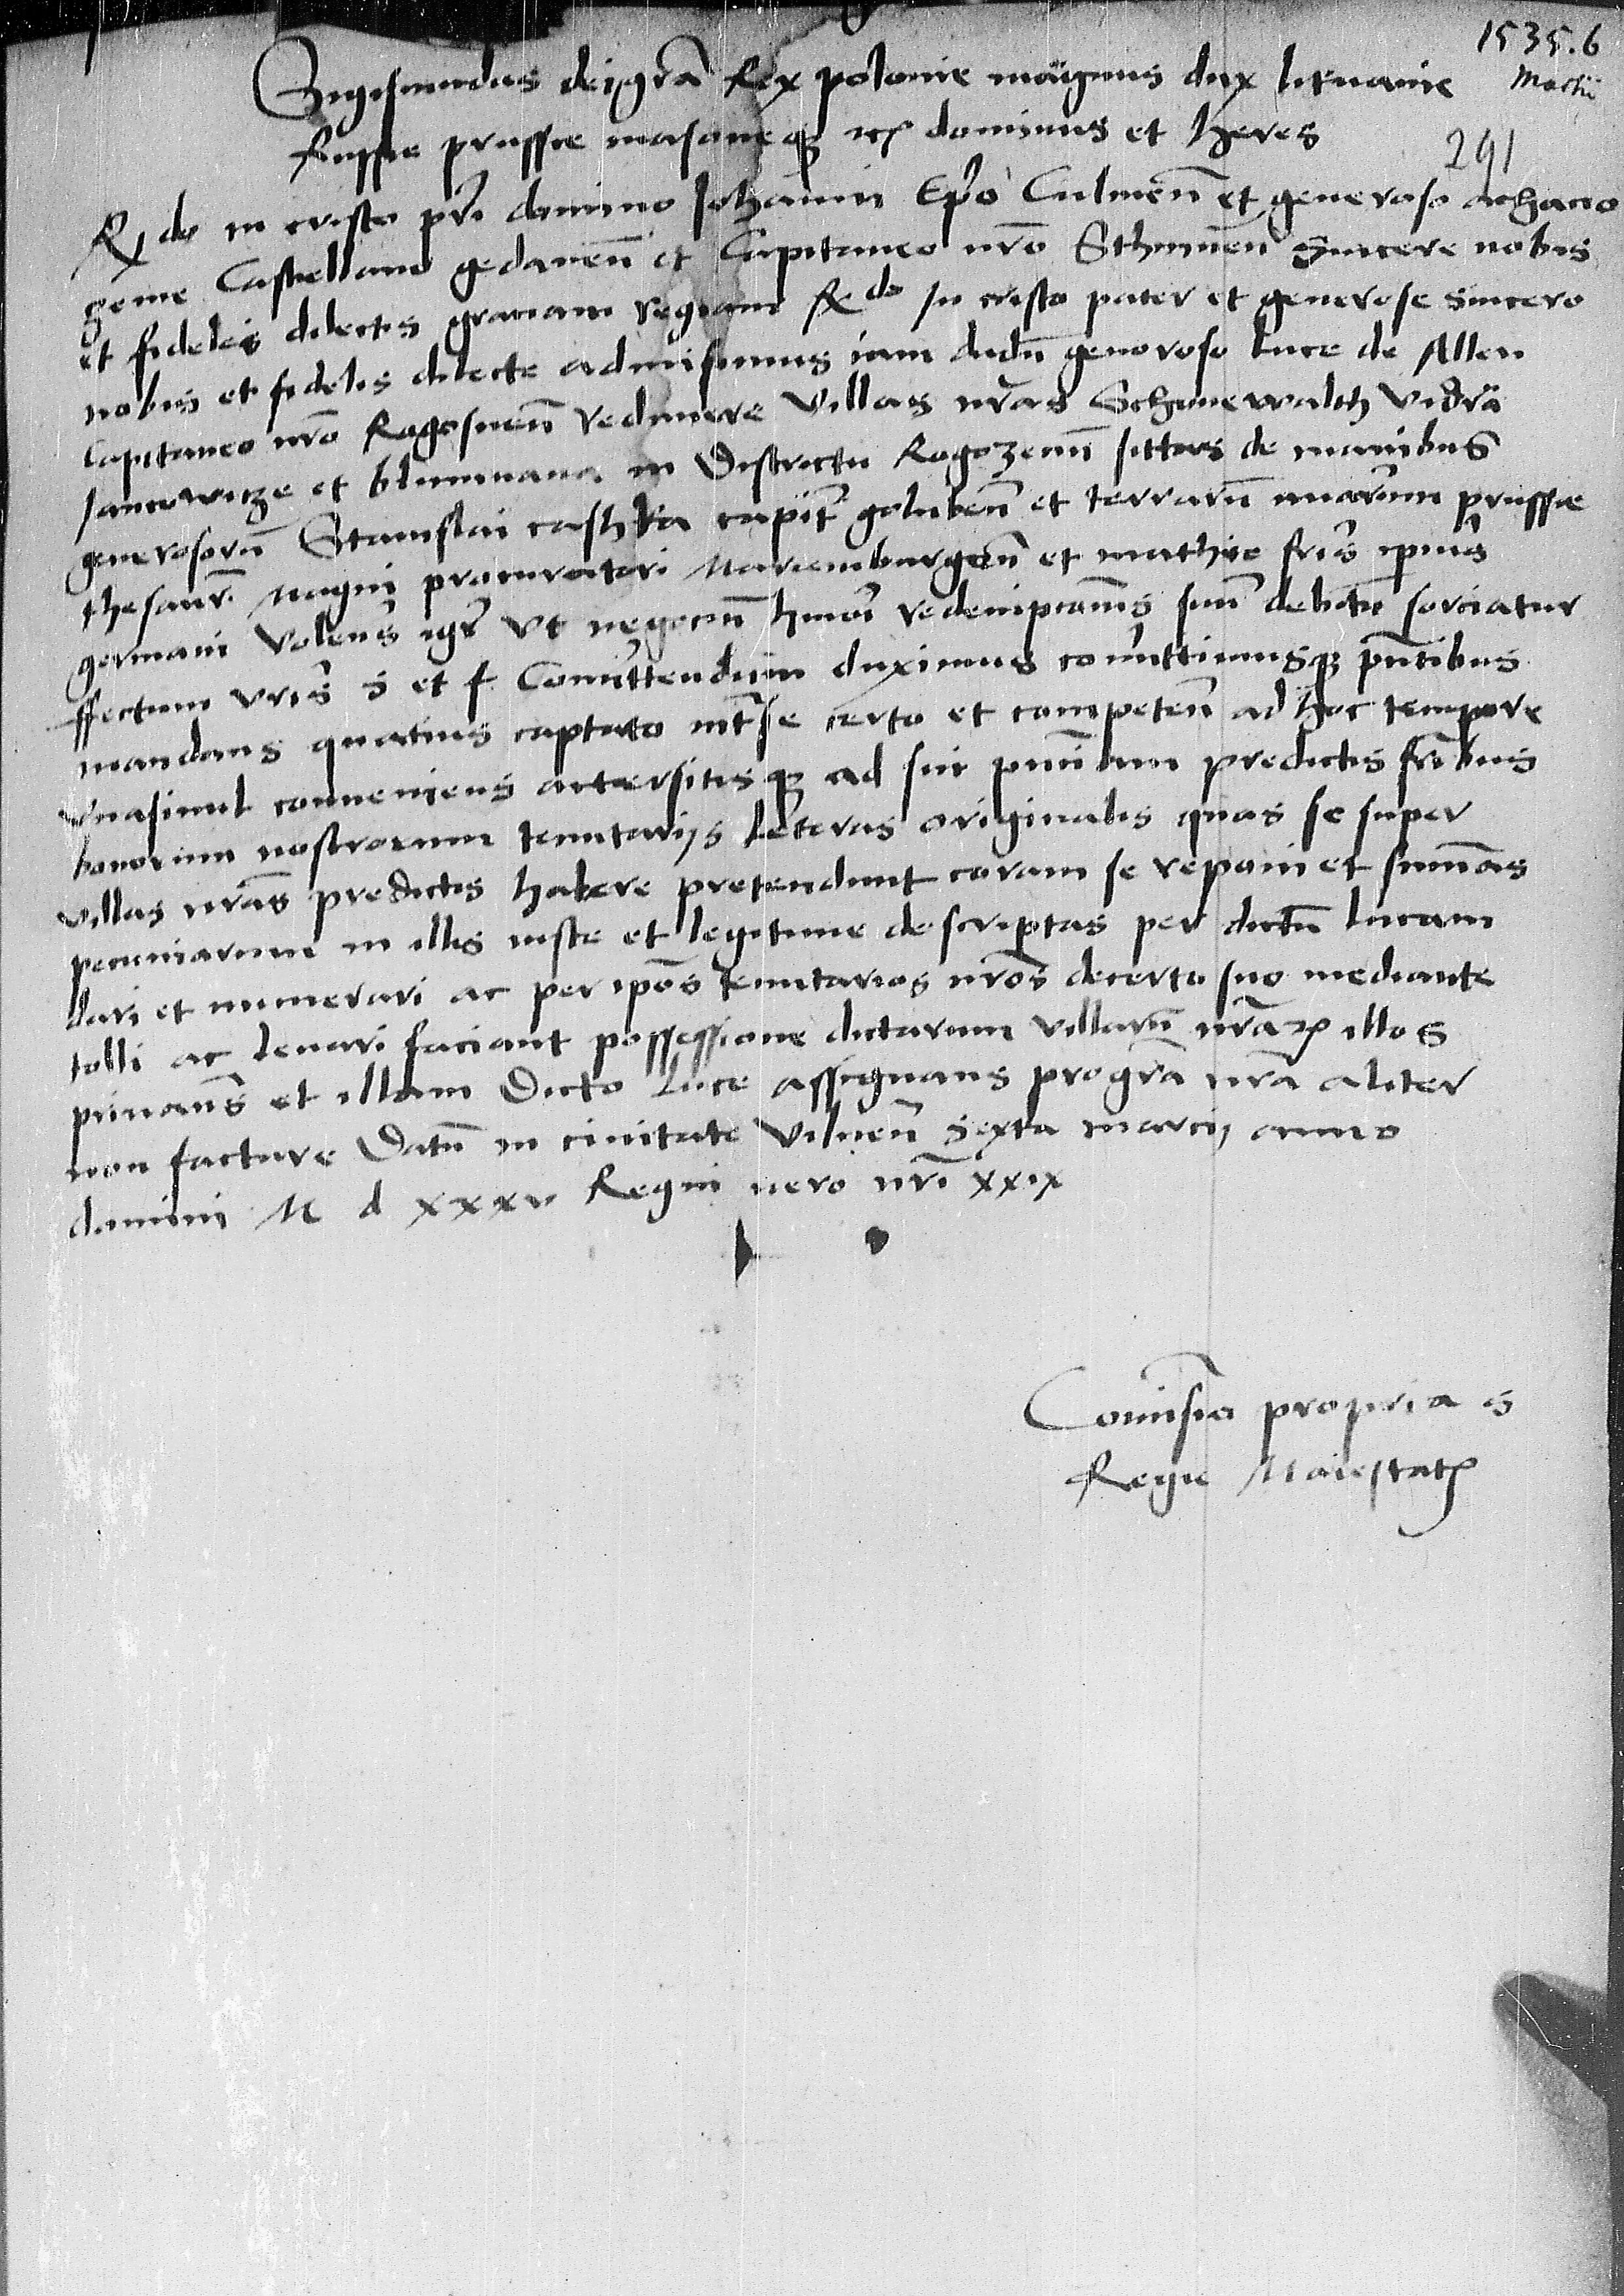 1535.6
Martii
291
Sigismundus deigra Rex polonie magnus dux lituanie
Russie prussie masoneq etc dominus et heres
Rdo in cristo pri domino Johanni Epo Culmen et generoso achacio
zeme Castellano gedanen et Capitaneo nro Sthumen Sincere nobis
et fidelis dilectis graciam regiam Rdo In cristo pater et generose sincere
nobis et fidelis dilecte admisimus iam dudu generoso luce de Allen
Capitaneo nro Rogosnen redimere villas nras Schonewalth vidra
Janowicze et blumuana in Districtu Rogozenn sittas de manibus
generosoru Stanislai cashka capit goluben et terraru nrarum prussie
thesaur Magni procuratori Marienburgen et mathie fris ipius
germani volens igr vt negociu hmoi redempcionis suu debitu sorciatur
effectum vris s et f Comittendum duximus comittimusq pntibus
mandans quatinus captato inter se certo et competen ad hoc tempore
vnasimul conveniens accersitisq ad sui pnciam predictis fribus
bonorum nostrorum tenutarijs leteras originalis quas se super
villas nras predictis habere pretendunt coram se reponi et sumas
pecuniarum in illis iuste et legitime descriptas per dictu lucam
dari et numerari ac per ipos tenutarios nros decerto suo mediante
tolli ac levari faciant possessione dictarum villaru nrar illos
privans et illam Dicto luce assignans progra nra aliter
non facture Datu in civitate vilnen sexta marcij anno
domini M d xxxv Regni vero nri xxix
Comissia propria s
Regie Maiestatis